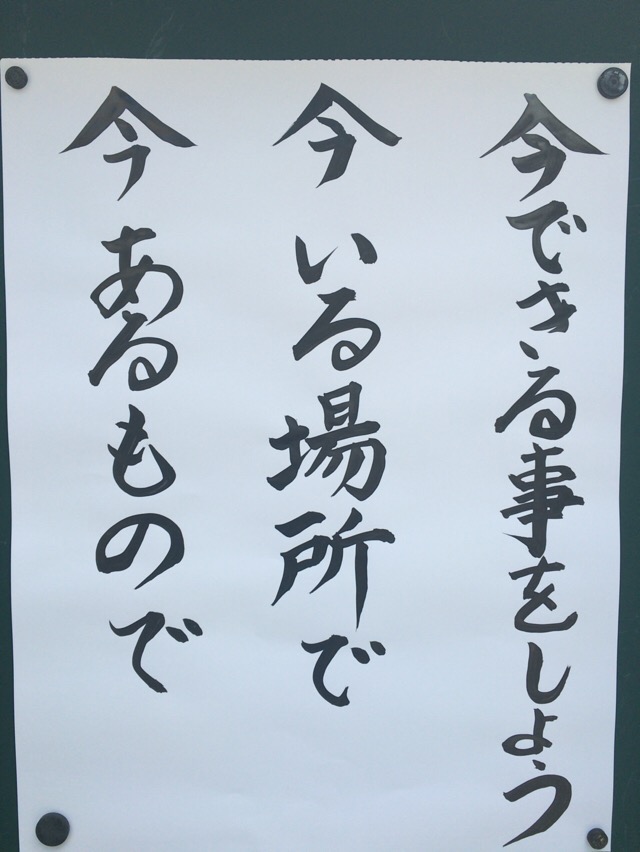 今できる事をしよう
今いる場所で
今あるもので